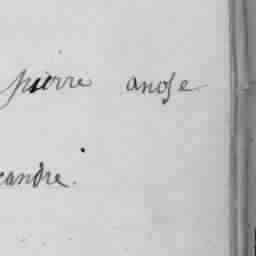 pierre ange
candre.